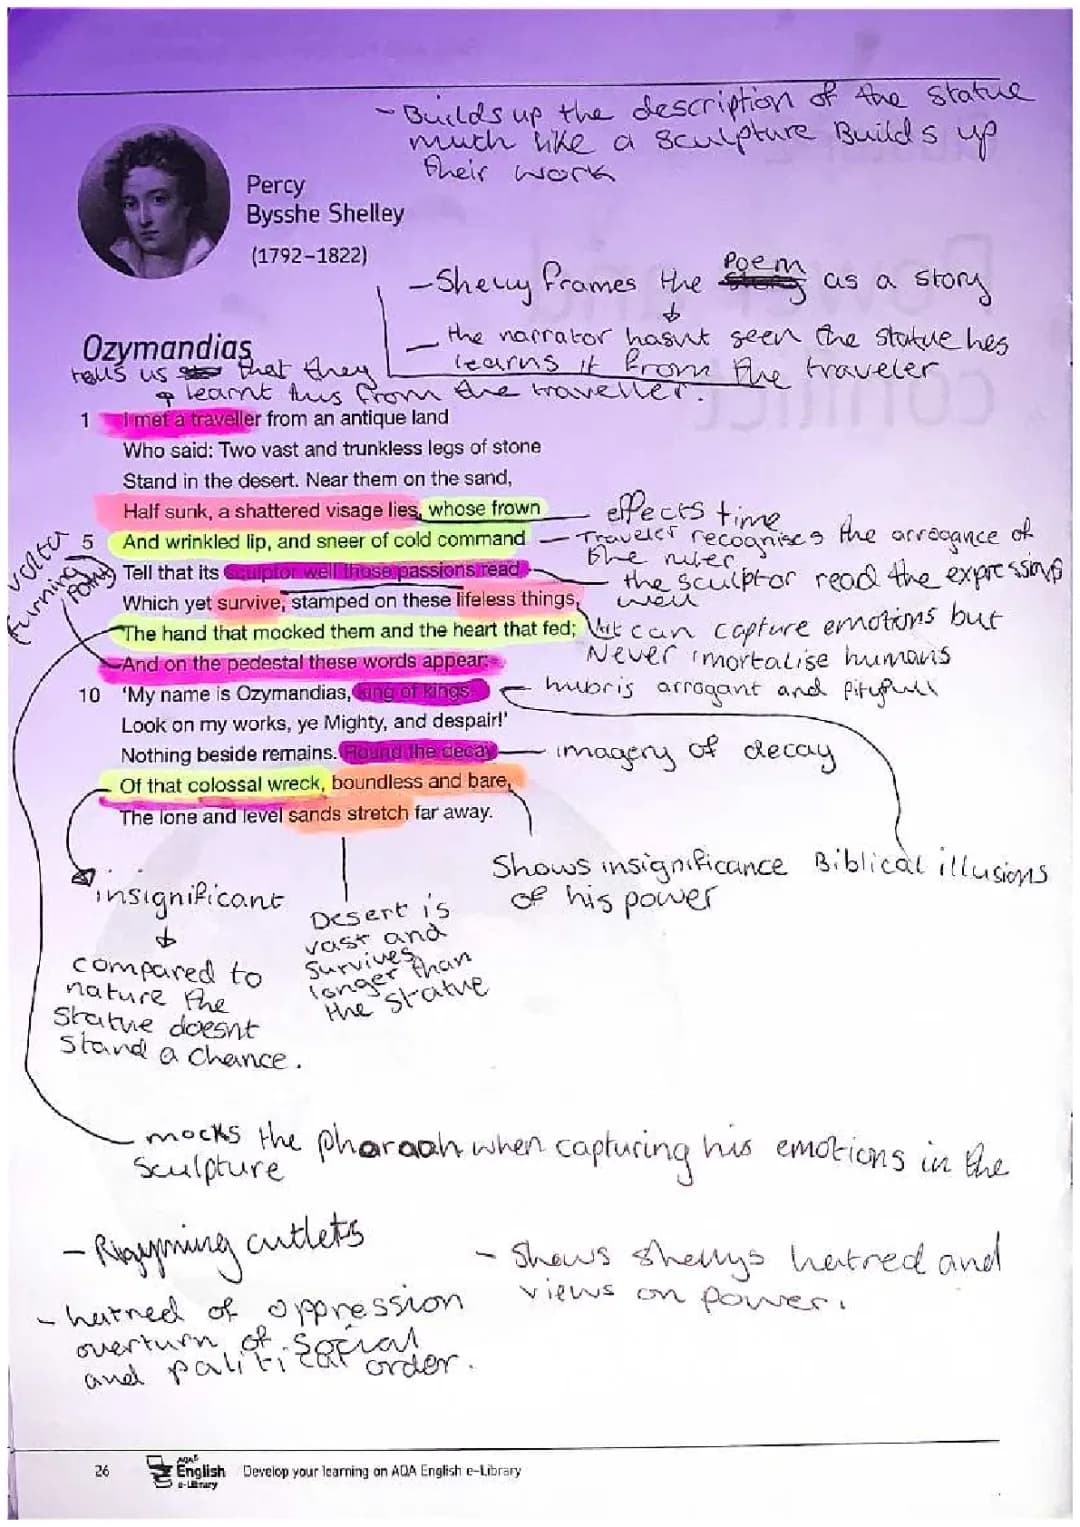 - Builds up the description of the statue
much like a sculpture Builds up
their work
Percy
Bysshe Shelley
(1792–1822)
- Shelly frames the Poem as a story
- the narrator hasnt seen the statue hes
learns it from the traveler
Ozymandias
tells us that they
learnt this from the traveller.
1 I met a traveller from an antique land
Who said: Two vast and trunkless legs of stone
Stand in the desert. Near them on the sand,
Half sunk, a shattered visage lies, whose frown
effects time
5 And wrinkled lip, and sneer of cold command
- Traveler recognises the arrogance of
the ruler
volta
turning point
Tell that its sculptor well those passions read
the sculptor read the expressions
well
Which yet survive, stamped on these lifeless things,
The hand that mocked them and the heart that fed;
Art can capture emotions but
Never imortalise humans
And on the pedestal these words appear:
10 'My name is Ozymandias, king of kings
hubris arrogant and pityfull
Look on my works, ye Mighty, and despair!'
Nothing beside remains. Round the decay
imagery of decay
Of that colossal wreck, boundless and bare,
The lone and level sands stretch far away.
Shows insignificance
of his power
Biblical illusions
insignificant
compared to
nature the
Statue doesnt
Stand a chance.
Desert is
vast and
survives
longer than
the statue
mocks the pharaoh when capturing his emotions in the
Sculpture
- hatred of oppression
overturn of social
and political order.
- Shows shellys hatred and
views on power.
26
AQA
English
e-Library
Develop your learning on AQA English e-Library